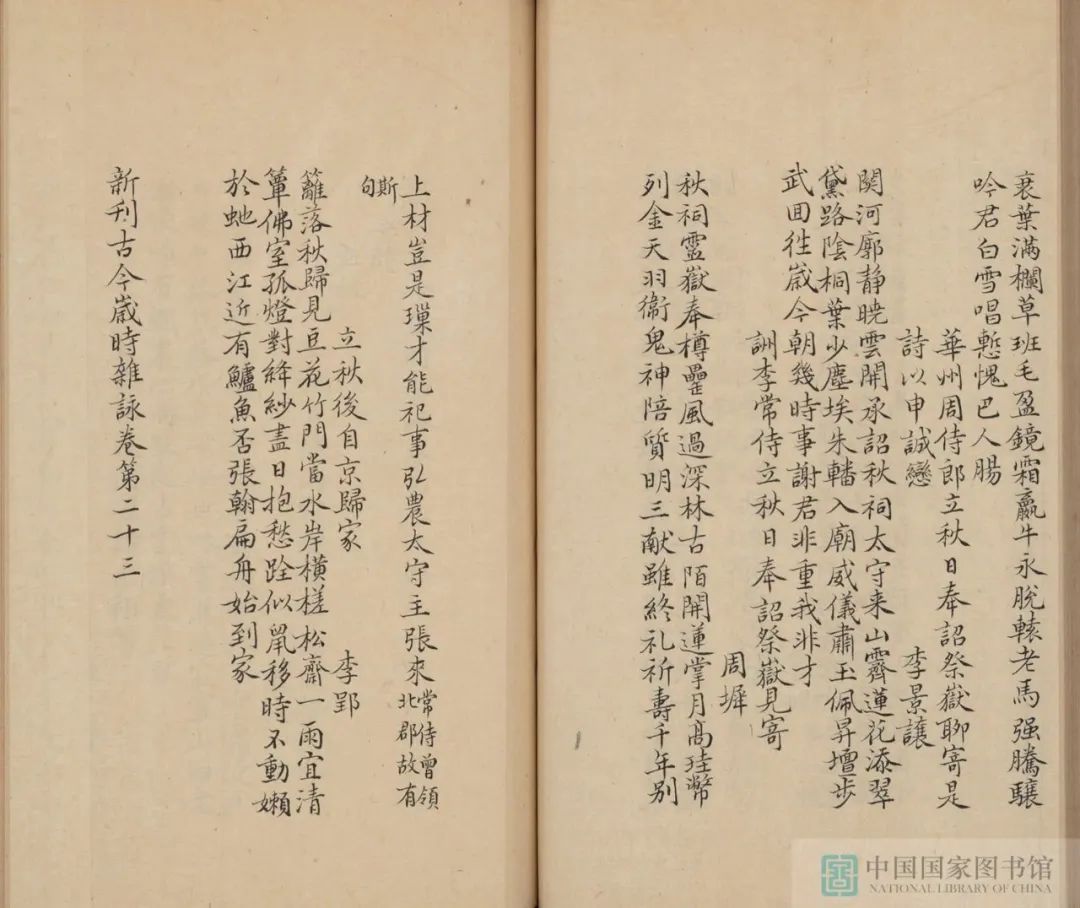 衰葉滿欄草班毛盈鏡霜羸牛永脫轅老馬强騰驤
吟君白雪唱慙愧巴人腸
華州周侍郎立秋日奉詔祭嶽聊寄是
詩以申誠戀
李景讓
関河廓静曉雲開承詔秋祠太守来山霽蓮花添翠
黛路陰桐葉少塵埃朱轓入廟威儀肅玉佩昇壇步
武回徃歲今朝幾時事謝君非重我非才
詶李常侍立秋日奉詔祭嶽見寄
周墀
秋祠靈嶽奉樽罍風過深林古陌開蓮掌月高珪幣
列金天羽衛鬼神陪質明三献雖終礼祈壽千年别
上材豈是璅才能祀事弘農太守主張來
常侍曾領
北郡故有
斯
句
立秋後自京歸家
李郢
籬落秋歸見豆花竹門當水岸橫槎松齋一雨宜清
簟佛室孤燈對絳紗盡日抱愁跧似鼠移時不動嬾
於虵西江近有鱸魚否張翰扁舟始到家
新刋古今歲時雜詠卷第二十三
中国国家图书馆
NATIONAL LIBRARY OF CHINA